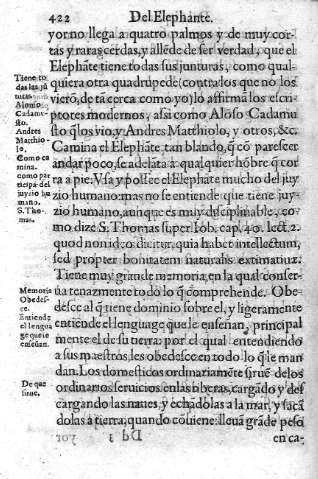 422 Del Elephante.
yor no llega a quatro palmos y de muy cor-
tas y raras cerdas, y allẽde de ser verdad, que el
Elephãte tiene todas sus junturas, como qual-
quiera otra quadrupede (contra los que no los
vierõ, de tã cerca como yo) lo affirmã los escri-
ptores modernos, assi como Alõso Cadamu
sto q̃ los vio, y Andres Matthiolo, y otros, &c.
Camina el Elephãte tan blando, q̃ cõ parescer
andar poco, se adelãta a qualquier hõbre q̃ cor
ra a pie. Vsa y possee el Elephãte mucho del juy
zio humano: mas no se entiende que tiene juy-
zio humano, aunque es muy disciplinable, co-
mo dize S. Thomas super Iob. cap. 40. lect. 2.
quod non ideo dicitur, quia habet intellectum,
sed propter bonitatem naturalis extimatiuæ.
Tiene muy grande memoria, en la qual conser-
ua tenazmente todo lo q̃ comprehende. Obe-
desce al q̃ tiene dominio sobre el, y ligeramente
entiende el lenguage que le enseñan, principal
mente el de su tierra: por el qual entendiendo
a sus maestros, les obedesce en todo lo q̃ le man
dan. Los domesticos ordinariamẽte siruẽ de los
ordinarios seruicios en las riberas, cargãdo y des
cargando las naues, y echãdolas a la mar, y sacã
dolas a tierra, quando cõuiene: lleuã grãde peso
Dd 3
en ca-
Tiene to
das las jũ
turas.
Alõso
Cadamu-
sto.
Andres
Matthio-
lo.
Como ca
mina.
como par
ticipa del
juyzio hu
mano.
S. Tho-
mas.
Memoria
Obedes-
ce.
Entiende
el lengua
ge que le
enseñan.
De que
sirue.